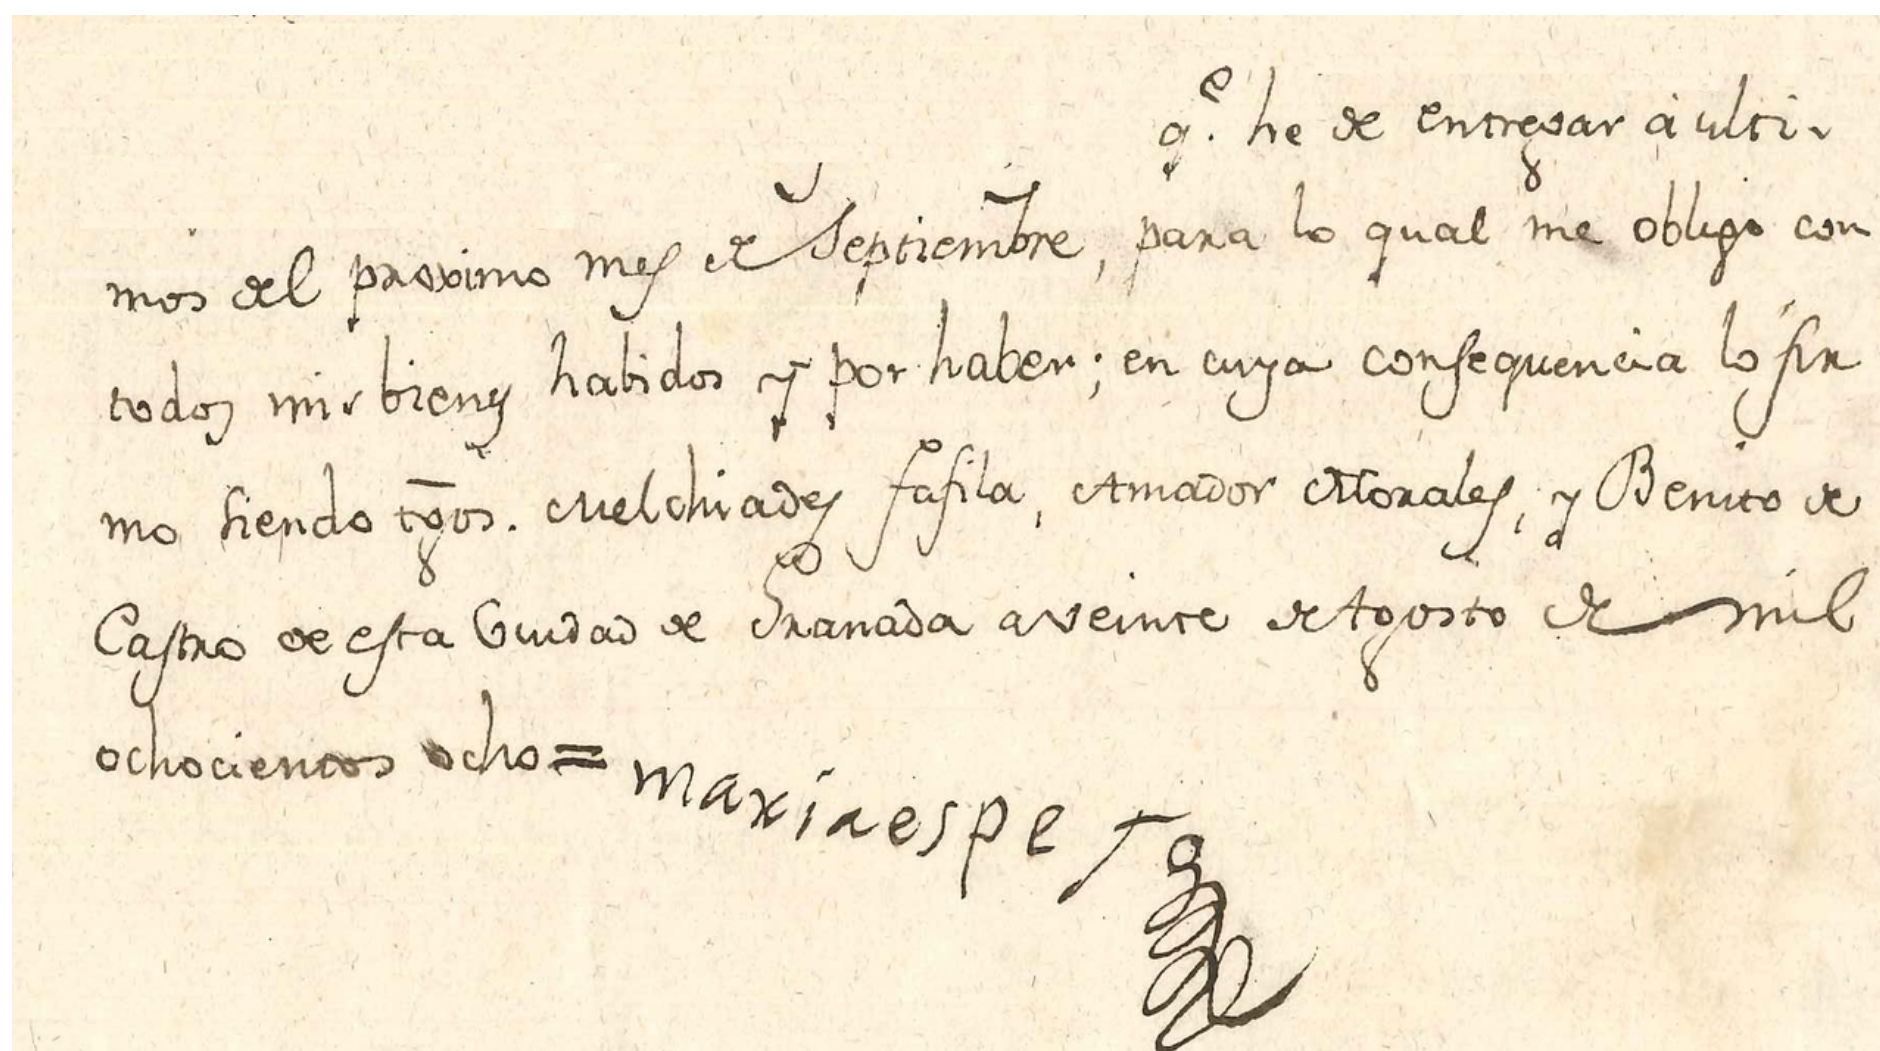 q.e he de entregar á ulti-
mos del proximo mes de Septiembre, para lo qual me obligo con
todos mis bienes habidos y por haber; en cuya consequencia lo fir
mo siendo tgos. Melchiades Fafila, Amador Morales, y Benito de
Castro de esta Ciudad de Granada a veinte de Agosto de mil
ochocientos ocho=
maria espe